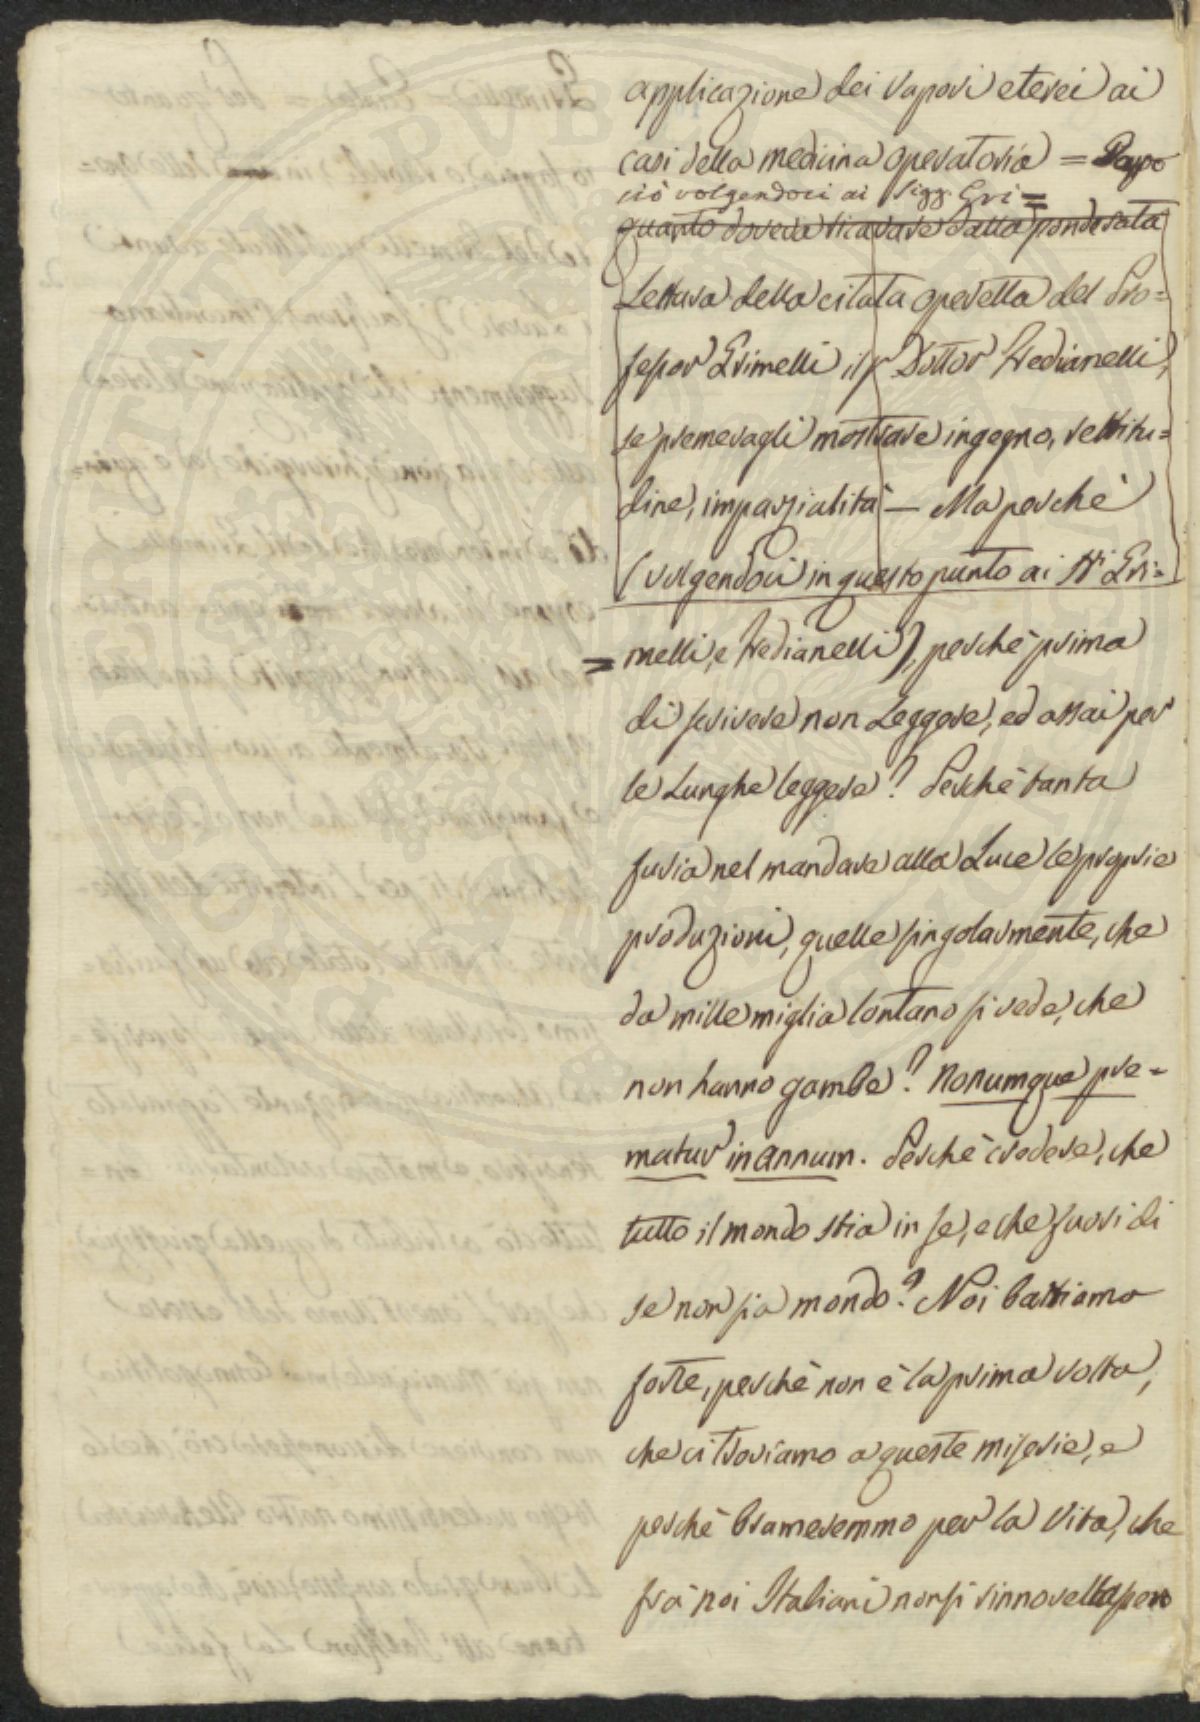 applicazione dei vapori eterei ai
casi della medicina operatoria = Dopo
ciò volgendoci ai Sigg. Gri=
quanto doveva ricavare dalla ponderata
Lettura della citata operetta del Pro=
fessor Grimelli il Dottor Fedianelli,
se premeragli mostrare ingegno, rettitu=
dine, imparzialità — Ma perchè
(volgendoci in questo punto ai Sri Gri=
= melli, e Fedianelli), perchè prima
di scrivere non Leggere, ed assai per
le Lunghe leggere? Perchè tanta
furia nel mandare alla Luce le proprie
produzioni, quelle singolarmente, che
da mille miglia lontano si vede, che
non hanno gambe? Nonumque pre=
matur in annum. Perchè credere, che
tutto il mondo stia in se, e che fuori di
se non sia mondo? Noi battiamo
forte, perchè non è la prima volta,
che ci troviamo a queste miserie, e
perchè brameremmo per la Vita, che
frà noi Italiani non si rinnovellassero